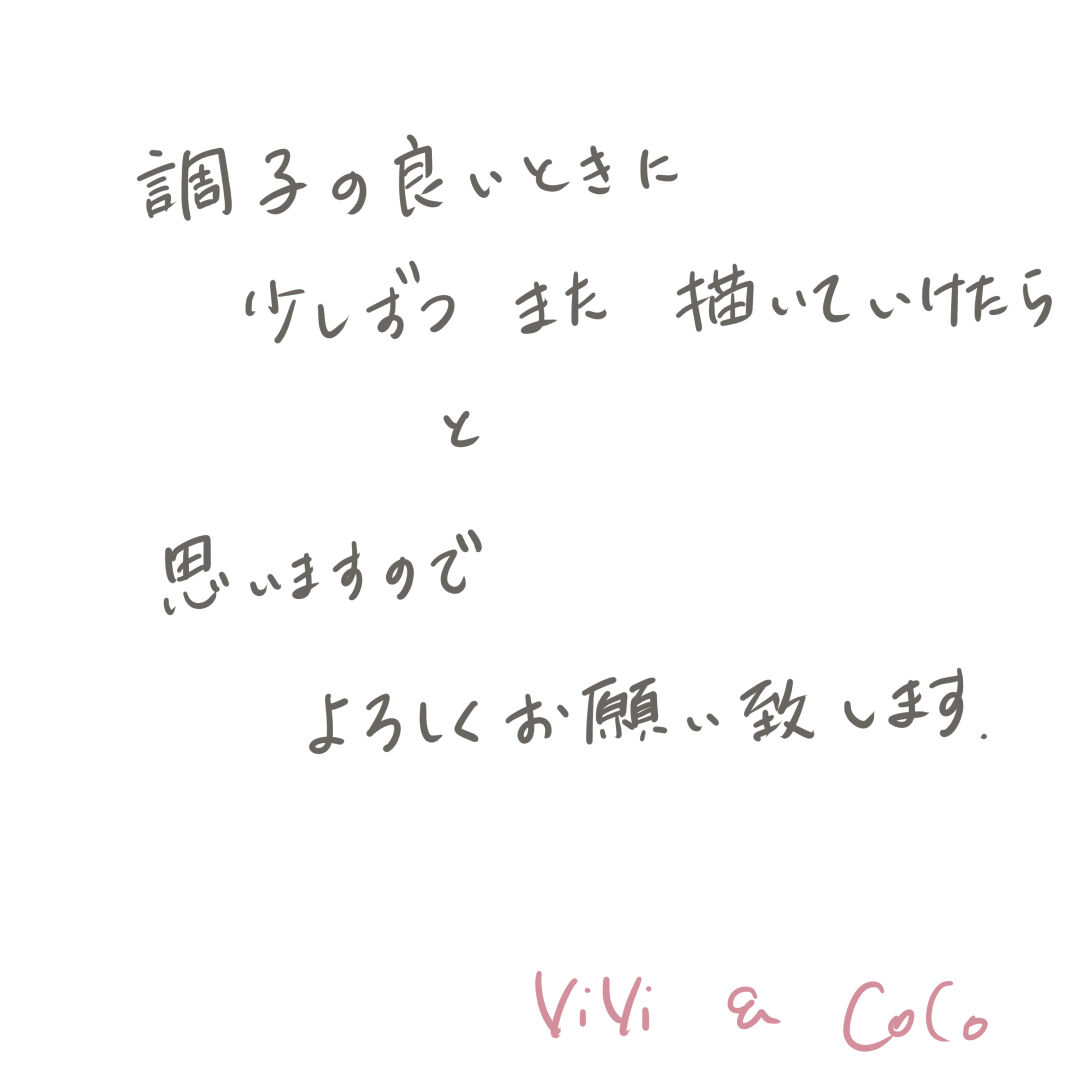 調子の良いときに
少しずつ また 描いていけたら
と
思いますので
よろしくお願い致します.
ViVi & CoCo